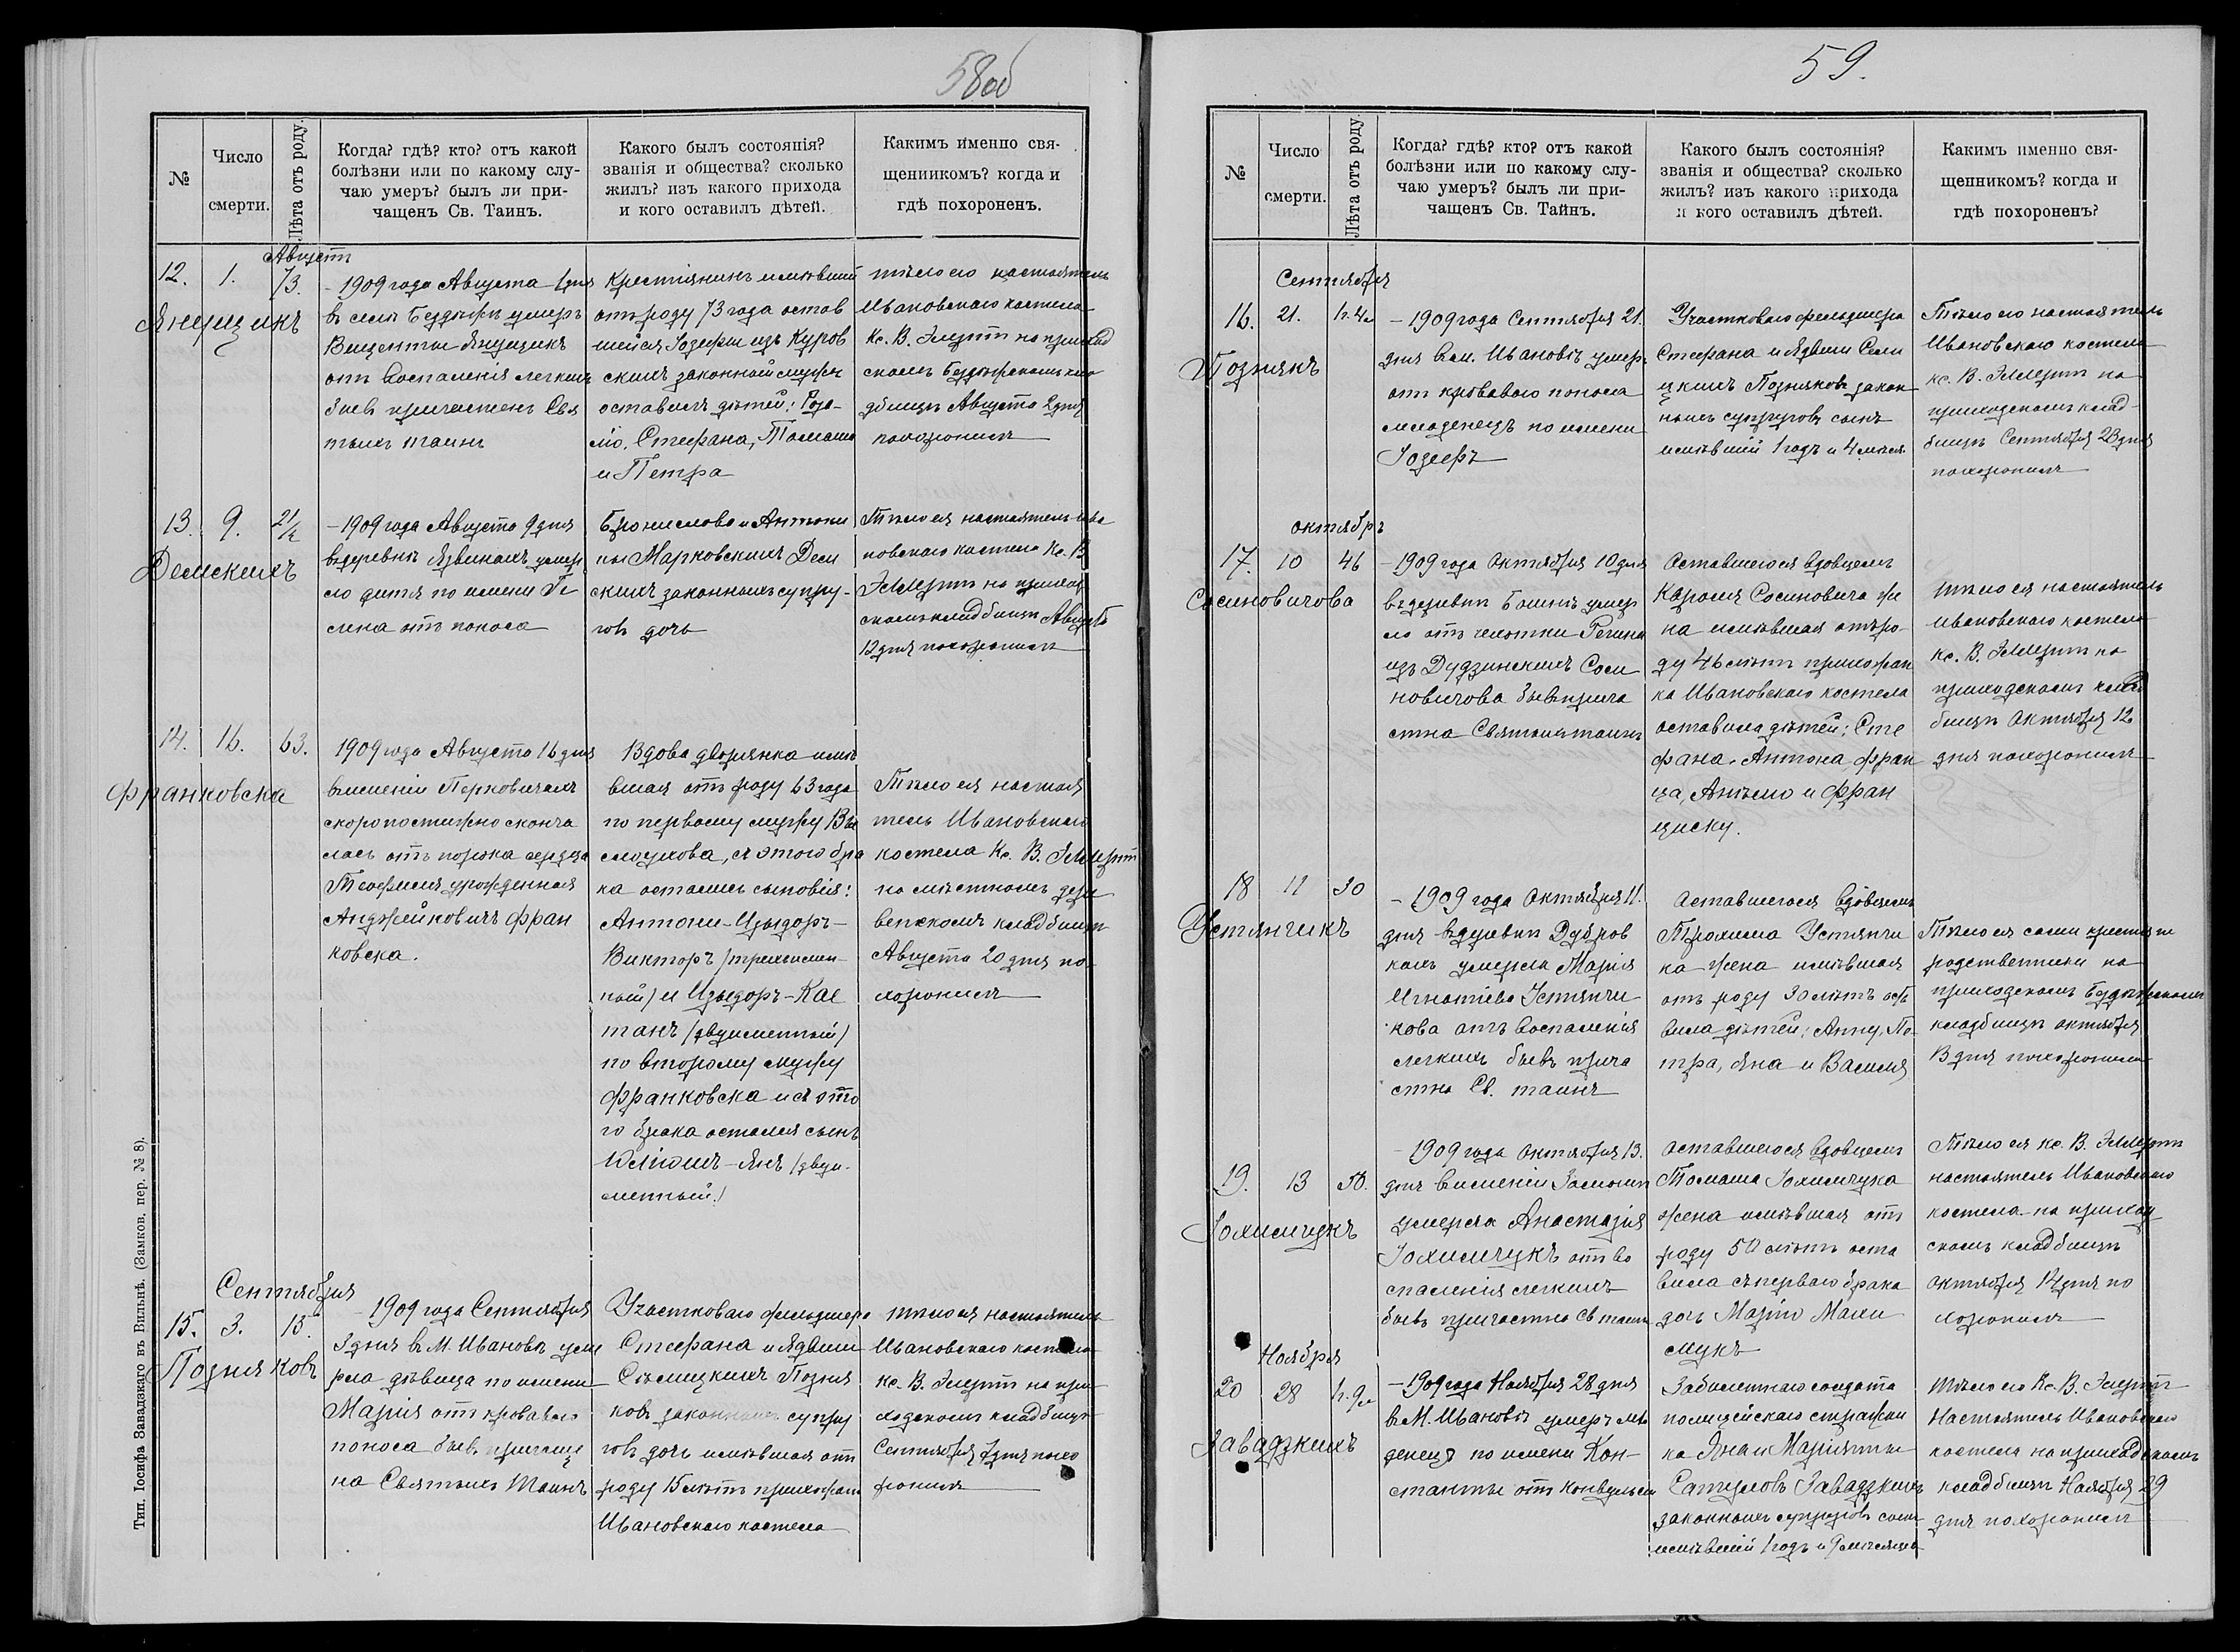 58об
№
Число
смерти.
Лѣта отъ роду.
Когда? гдѣ? кто? отъ какой
болѣзни или по какому слу-
чаю умеръ? былъ ли при-
чащенъ Св. Таинъ.
Какого былъ состоянія?
званія и общества? сколько
жилъ? изъ какого прихода
и кого оставилъ дѣтей.
Какимъ именно свя-
щенникомъ? когда и
гдѣ похороненъ.
Августъ
12. 1. 73.
Янущикъ
- 1909 года Августа 1 дня
въ селѣ Бездѣжѣ умеръ
Викенты Янущикъ
отъ воспаленія легкихъ
бывъ причастенъ Свя
тыхъ таинъ
Крестіянинъ имѣвшій
отъ роду 73 года остав
шейся Іозефы изъ Куров
скихъ законный мужъ
оставилъ дѣтей: Роза-
лію, Стефана, Томаша
и Петра
тѣло его настоятель
Ивановскаго костела
Кс. В. Эллертъ на приход
скомъ Бездѣжскомъ кла
дбищѣ Августа 2 дня
похоронилъ
13. 9. 2 1/2
Демскихъ
- 1909 года Августа 9 дня
въ деревнѣ Язвинахъ умер
ло дитя по имени Ге
лена отъ поноса
Бронислава и Антони
ны Марковскихъ Дем
скихъ законныхъ супру-
говъ дочь
Тѣло ея настоятель Ива
новскаго костела Кс. В.
Эллертъ на приход
скомъ кладбищѣ Августа
12 дня похоронилъ
14. 16. 63.
Франковска
1909 года Августа 16 дня
въ имѣніи Перковичахъ
скоропостижно сконча
лась отъ порока сердца
Теофилія урожденная
Андржейковичъ Фран
ковска.
Вдова дворянка имѣ
вшая отъ роду 63 года
по первому мужу
съ этого бра
ка остались сыновія:
Антони-Изыдоръ-
Викторъ (трехимен-
ный) и Изыдоръ-Кае
танъ (двуименный)
по второму мужу
Франковска и съ это
го брака остался сынъ
Юліюшъ-Янъ (двуи-
менный.)
Тѣло ея настоя
тель Ивановскаго
костела Кс. В. Эллертъ
на мѣстномъ дере
венскомъ кладбищѣ
Августа 20 дня по-
хоронилъ
Сентября
15. 3. 15.
Позняковъ
- 1909 года Сентября
3 дня въ М. Ивановѣ уме
рла дѣвица по имени
Марія отъ кроваваго
поноса бывъ причаще
на Святыхъ Таинъ
Участковаго фельдшера
Стефана и Ядвиги
Сѣлицкихъ Позня
ковъ законныхъ супру
говъ дочь имѣвшая отъ
роду 15 лѣтъ прихожан
Ивановскаго костела
тѣло ея настоятель
Ивановскаго костела
Кс. В. Эллертъ на при-
ходскомъ кладбищѣ
Сентября дня похо
ронилъ
Тип. Іосифа Завадзкаго въ Вильнѣ. (Замков. пер. № 8).
59.
№
Число
смерти.
Лѣта отъ роду.
Когда? гдѣ? кто? отъ какой
болѣзни или по какому слу-
чаю умеръ? былъ ли при-
чащенъ Св. Тайнъ.
Какого былъ состоянія?
званія и общества? сколько
жилъ? изъ какого прихода
и кого оставилъ дѣтей.
Какимъ именно свя-
щенникомъ? когда и
гдѣ похороненъ?
Сентября
16. 21. 1г. 4м
Познякъ
- 1909 года Сентября 21.
дня въ м. Ивановѣ умеръ
отъ кроваваго поноса
младенецъ по имени
Іозефъ
Участковаго фельдшера
Стефана и Ядвиги Сели
цкихъ Позняковъ закон
ныхъ супруговъ сынъ
имѣвшій 1 годъ и 4 мѣся.
Тѣло его настоятель
Ивановскаго костела
кс. В. Эллертъ на
приходскомъ клад-
бищѣ Сентября 23 дня
похоронилъ
октябрь
17. 10 46
Сосиновичова
- 1909 года Октября 10 дня
въ деревнѣ умер
ла отъ чахотки Регина
изъ Дудзинскихъ Соси
новичова бывъ прича
стна Святыхъ таинъ
Оставшегося вдовцемъ
Кароля Сосиновича же
на имѣвшая отъ ро-
ду 46 лѣтъ прихожан
ка Ивановскаго костела
оставила дѣтей: Сте
фана, Антона, Фран
ца, Анѣлю и Фран
циску.
тѣло ея настоятель
Ивановскаго костела
кс. В. Эллертъ на
приходскомъ клад
бищѣ Октября 12
дня похоронилъ
18 11 30
Устянчикъ
- 1909 года Октября 11.
дня въ деревнѣ Дубров
кахъ умерла Марія
Игнатіева Устянчи-
кова отъ воспаленія
легкихъ бывъ прича
стна Св. таинъ
Оставшегося вдовцемъ
Трохима Устянчи
ка жена имѣвшая
отъ роду 30 лѣтъ оста
вила дѣтей: Анну, Пе-
тра, Яна и Василія
Тѣло ея сами крестіяне
родственники на
приходскомъ Бездѣжскомъ
кладбищѣ октября
13 дня похоронили
19. 13 50.
Іохимчукъ
- 1909 года октября 13.
дня въ имѣніи
умерла Анастазія
Іохимчукъ отъ во
спаленія легкихъ
бывъ причастна Св таинъ
оставшегося вдовцемъ
Томаша Іохимчука
жена имѣвшая отъ
роду 50 лѣтъ оста
вила съ перваго брака
дочь Марію Махи
мукъ
Тѣло ея кс. В. Эллертъ
настоятель Ивановскаго
костела на приход
скомъ кладбищѣ
октября 14 дня по
хоронилъ
Ноября
20 28 1г. 9м
Завадзкихъ
- 1909 года Ноября 28 дня
въ М. Ивановѣ умеръ мла
денецъ по имени Кон-
станты отъ конвульсіи
солдата
полицейскаго стражни
ка Яна и Маріянны
Завадзкихъ
законныхъ супруговъ сынъ
имѣвшій 1 годъ и 9 мѣсяцевъ
Тѣло его Кс. В. Эллертъ
Настоятель Ивановскаго
костела на приходскомъ
кладбищѣ Ноября 29
дня похоронилъ